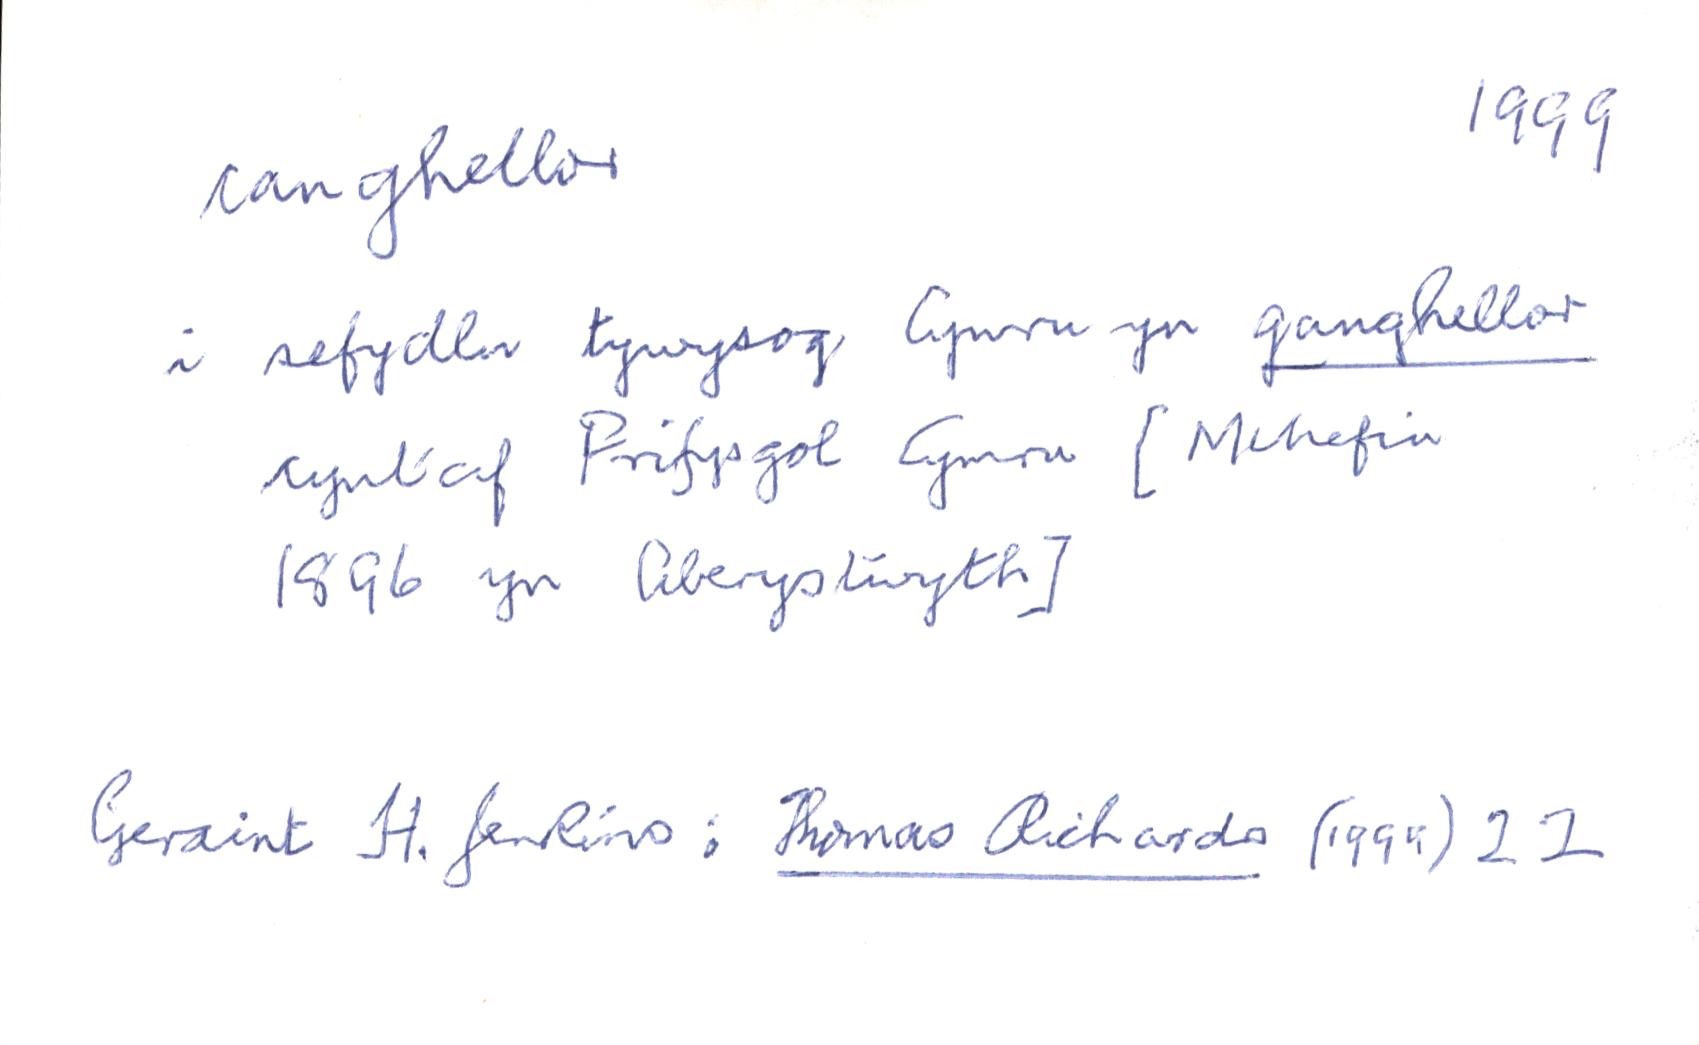 canghellor 1999
i sefydlu tywysog Cymru yn ganghellor
cyntaf Prifysgol Cymru [Mehefin
1896 yn Aberystwyth]
Geraint H. Jenkins; Thomas Richards (1999) 22